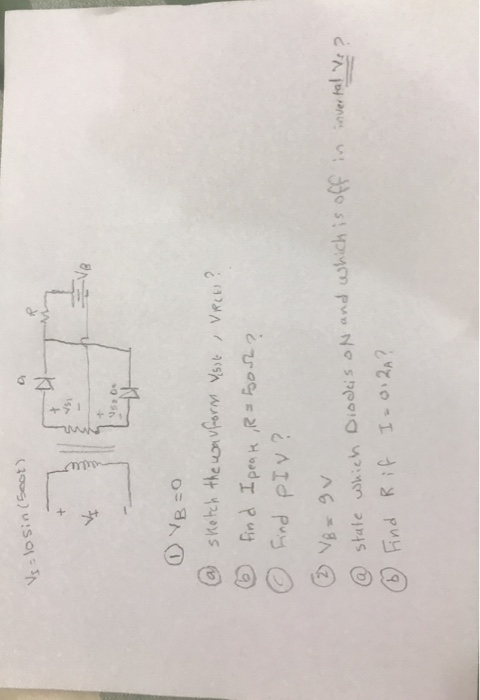 VI = 10 sin (500t)
D1
R
+
VS1
-
VB
+
VI
-
+
VS2
-
① VB = 0
ⓐ sketch the wavform VS1t , VR(t) ?
ⓑ find I peak , R = 500Ω ?
ⓒ find PIV ?
② VB = 9V
ⓐ state which Diodeis ON and which is off in invertal VI ?
ⓑ Find R if I = 0.2A ?